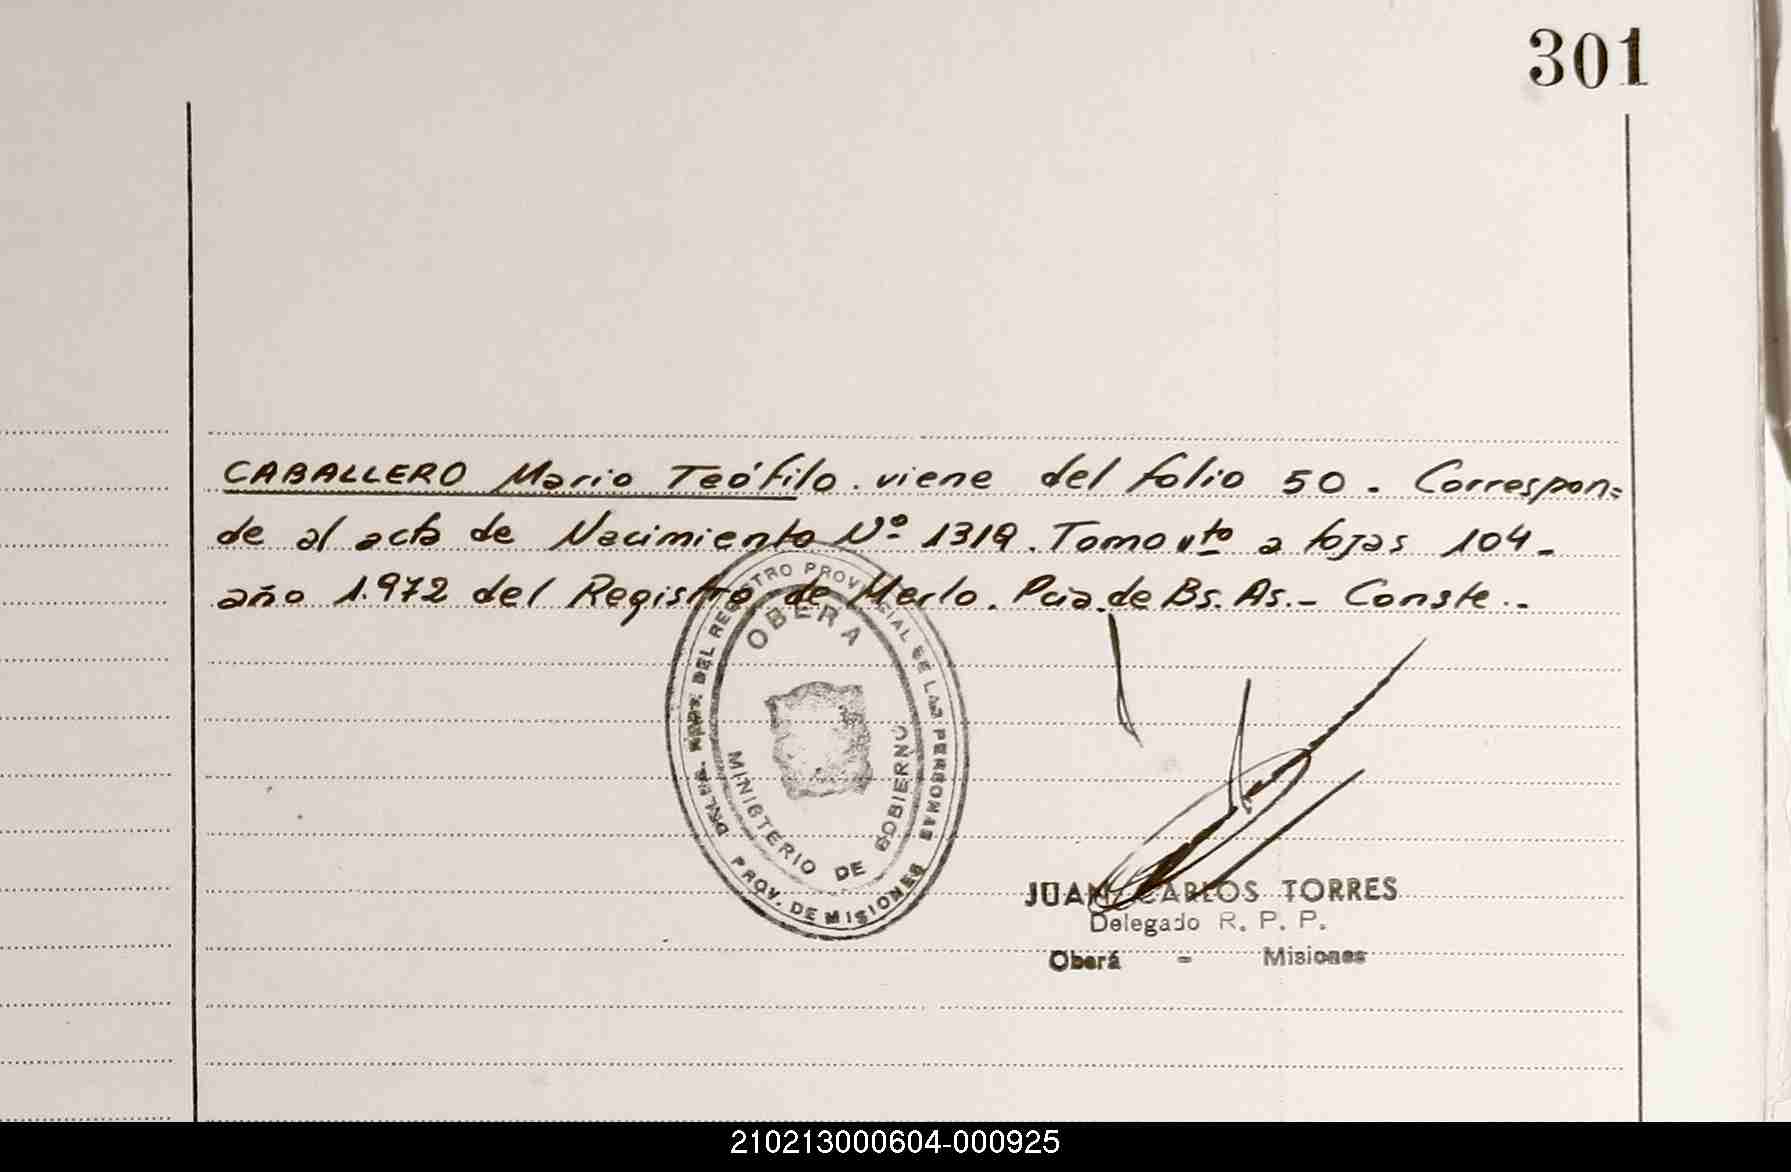 301
CABALLERO Mario Teófilo. viene del folio 50. Correspon=
de al acta de Nacimiento Nº 1319. Tomo a fojas 104-
año 1.972 del Registro de Merlo. Pcia. de Bs. As.- Conste.-
DEL REGISTRO PROVINCIAL DE LAS PERSONAS
OBERA
MINISTERIO DE GOBIERNO
PROV. DE MISIONES
JUAN CARLOS TORRES
Delegado R. P. P.
Oberá - Misiones
210213000604-000925